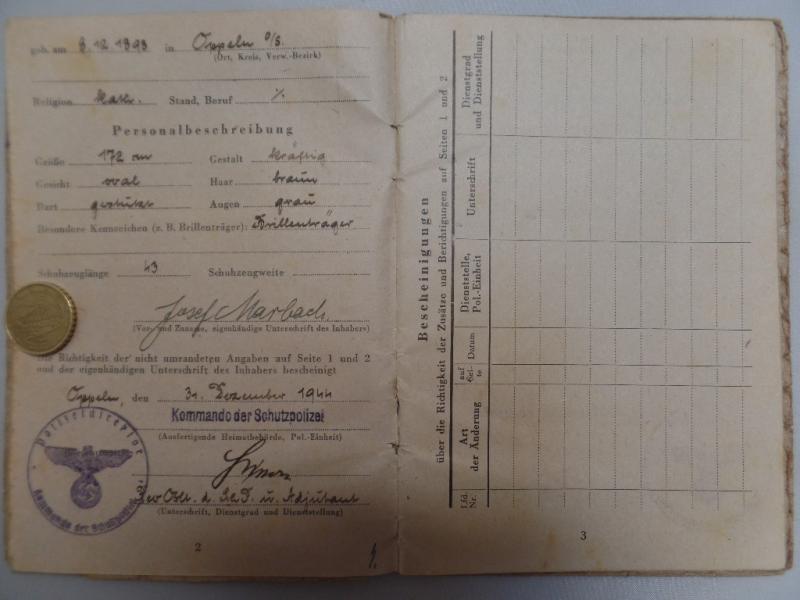 geb. am 8.12.1893 in Oppeln O/S.
(Ort, Kreis, Verw.-Bezirk)
Religion kath. Stand, Beruf ./.
Personalbeschreibung
Größe 172 cm Gestalt kräftig
Gesicht oval Haar braun
Bart gestutzt Augen grau
Besondere Kennzeichen (z. B. Brillenträger): Brillenträger
Schuhzeuglänge 43 Schuhzeugweite
Josef Marbach
(Vor- und Zuname, eigenhändige Unterschrift des Inhabers)
Die Richtigkeit der nicht umrandeten Angaben auf Seite 1 und 2
und der eigenhändigen Unterschrift des Inhabers bescheinigt
Oppeln, den 31. Dezember 1944
Kommando der Schutzpolizei
(Ausfertigende Heimatbehörde, Pol.-Einheit)
Rev Oblt. d. Sch. P. u. Adjutant
(Unterschrift, Dienstgrad und Dienststellung)
Kommando der Schutzpolizei
2
Bescheinigungen
über die Richtigkeit der Zusätze und Berichtigungen auf Seiten 1 und 2
Lfd. Nr.
Art der Änderung
auf Sei-te
Datum
Dienststelle, Pol.-Einheit
Unterschrift
Dienstgrad und Dienststellung
3